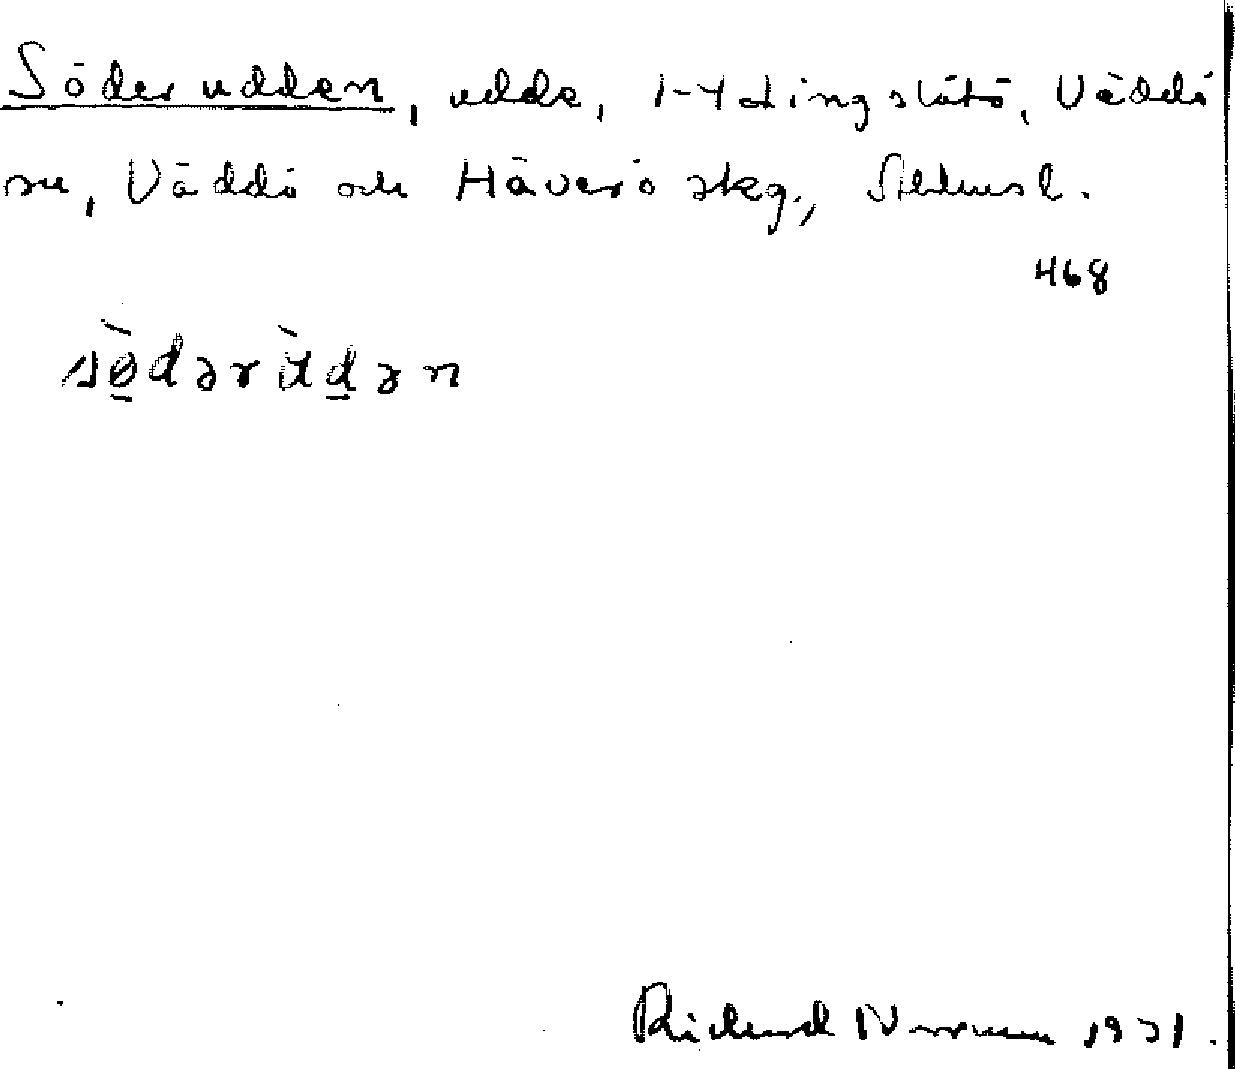 Söderudden, udde, Väddö
sn, Väddö och Häverö skg., Sthlms l.
468
sø̀dərùdən
Richard Norrman 1931.